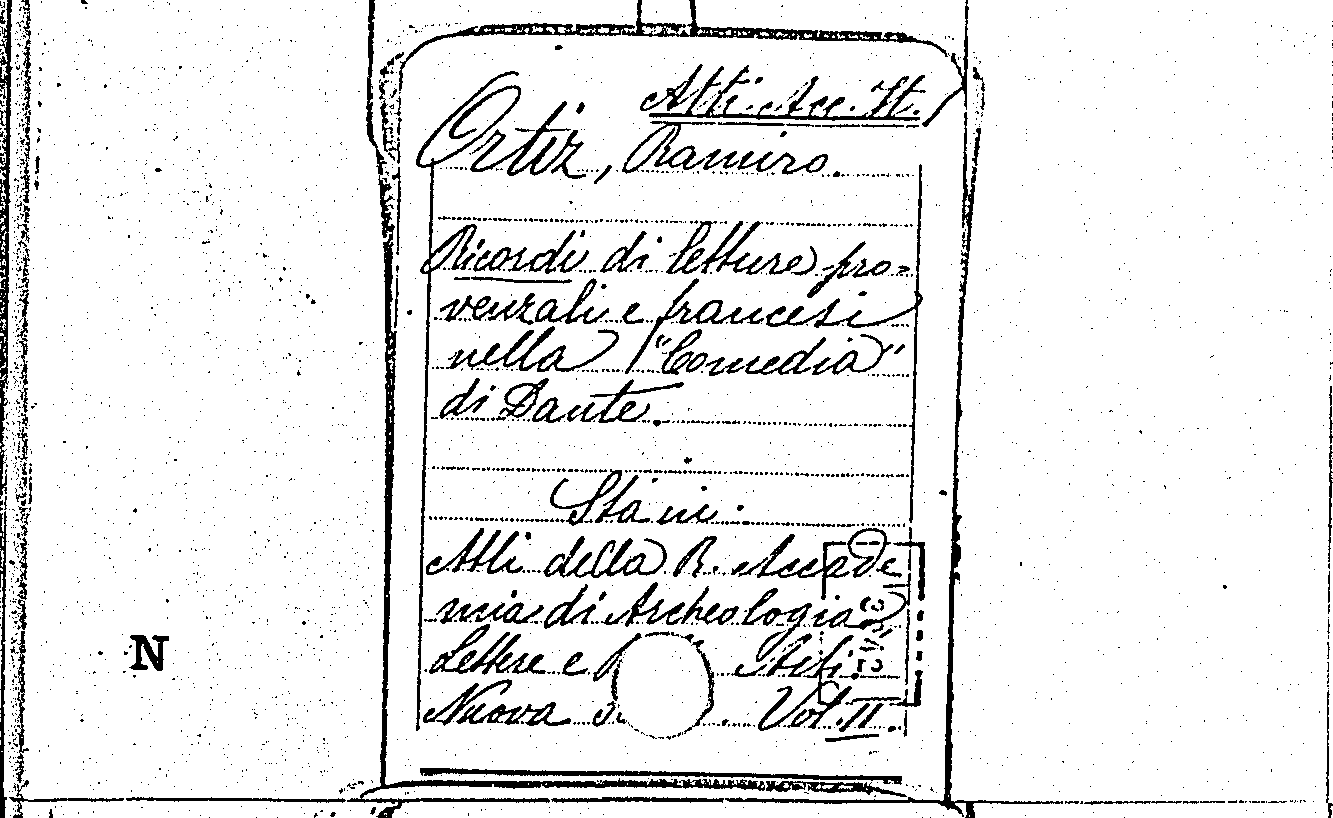 Atti. Acc. It.
Ortiz, Ramiro.
Ricordi di letture pro-
venzali e francesi
nella "Comedia"
di Dante.
Atti della R. Accade
mia di Archeologia
Lettere e
Nuova Vol. II.
N